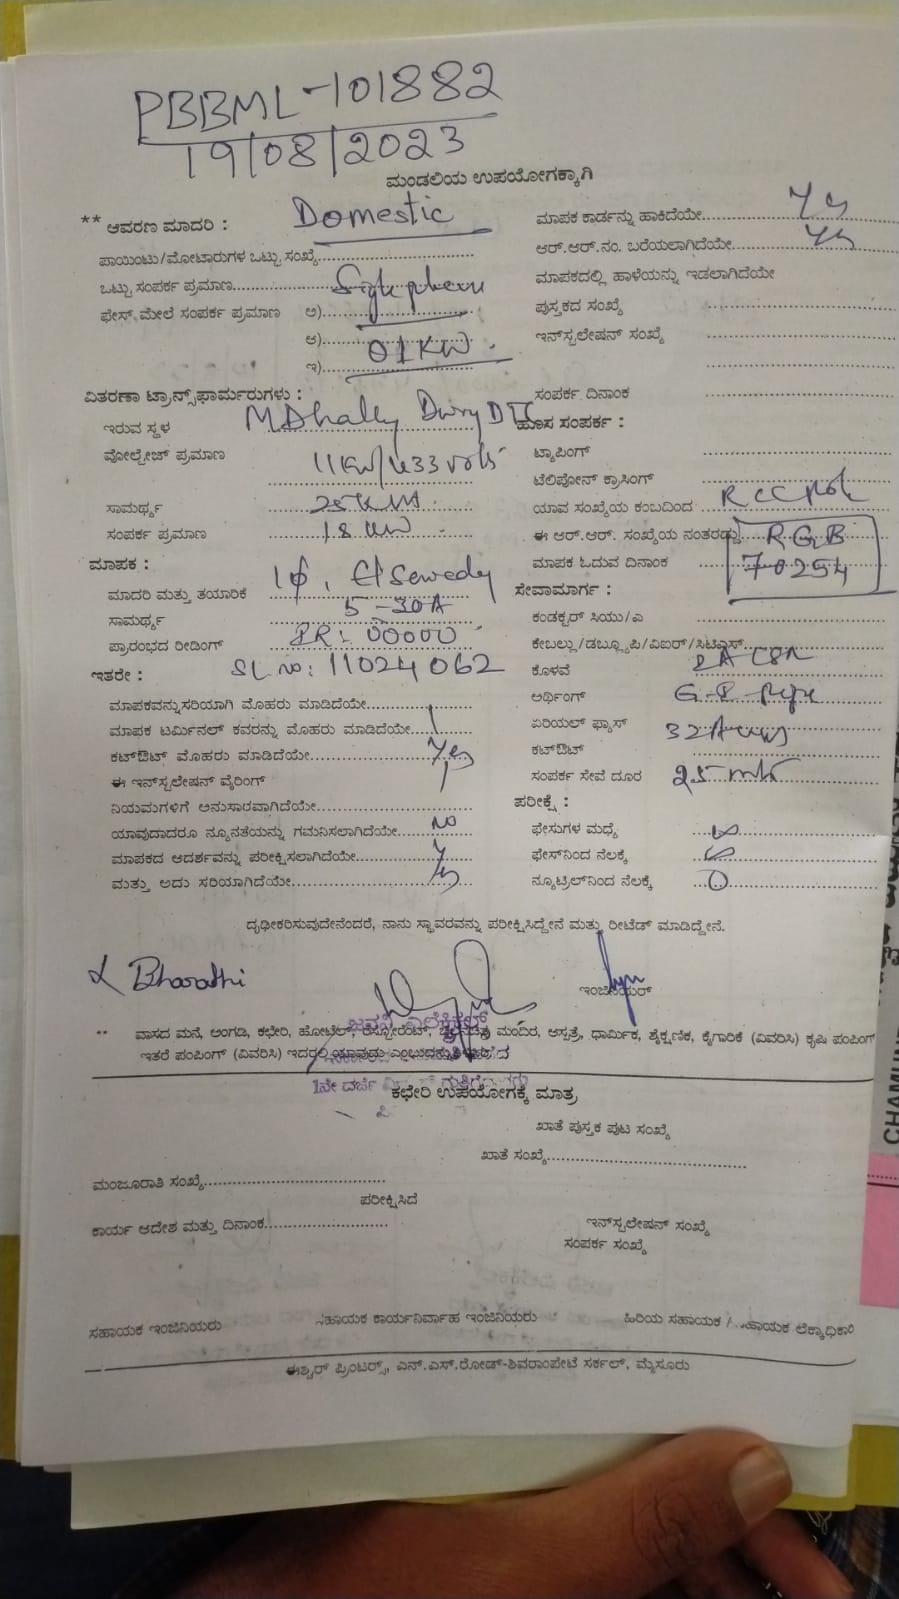 PBBML-101882
19/08/2023
ಮಂಡಲಿಯ ಉಪಯೋಗಕ್ಕಾಗಿ
** ಆವರಣ ಮಾದರಿ : Domestic
ಪಾಯಿಂಟು/ಮೋಟಾರುಗಳ ಒಟ್ಟು ಸಂಖ್ಯೆ
ಒಟ್ಟು ಸಂಪರ್ಕ ಪ್ರಮಾಣ
ಫೇಸ್ ಮೇಲೆ ಸಂಪರ್ಕ ಪ್ರಮಾಣ ಅ)
ಆ) 01KW.
ಇ)
ಮಾಪಕ ಕಾರ್ಡನ್ನು ಹಾಕಿದೆಯೇ
ಆರ್.ಆರ್.ನಂ. ಬರೆಯಲಾಗಿದೆಯೇ
ಮಾಪಕದಲ್ಲಿ ಹಾಳೆಯನ್ನು ಇಡಲಾಗಿದೆಯೇ
ಪುಸ್ತಕದ ಸಂಖ್ಯೆ
ಇನ್‌ಸ್ಟಲೇಷನ್ ಸಂಖ್ಯೆ
ಸಂಪರ್ಕ ದಿನಾಂಕ
ವಿತರಣಾ ಟ್ರಾನ್ಸ್‌ಫಾರ್ಮರುಗಳು :
ಇರುವ ಸ್ಥಳ
ವೋಲ್ಟೇಜ್ ಪ್ರಮಾಣ
ಸಾಮರ್ಥ್ಯ
ಸಂಪರ್ಕ ಪ್ರಮಾಣ 18 KW
ಮಾಪಕ :
ಮಾದರಿ ಮತ್ತು ತಯಾರಿಕೆ 1ϕ, El Sewedy
ಸಾಮರ್ಥ್ಯ 5-30A
ಪ್ರಾರಂಭದ ರೀಡಿಂಗ್ IR: 00000
ಇತರೇ : SL no: 11024062
ಹೊಸ ಸಂಪರ್ಕ :
ಟ್ಯಾಪಿಂಗ್
ಟೆಲಿಫೋನ್ ಕ್ರಾಸಿಂಗ್
ಯಾವ ಸಂಖ್ಯೆಯ ಕಂಬದಿಂದ RCC
ಈ ಆರ್.ಆರ್. ಸಂಖ್ಯೆಯ ನಂತರದ್ದು RGB
ಮಾಪಕ ಓದುವ ದಿನಾಂಕ 70254
ಸೇವಾಮಾರ್ಗ :
ಕಂಡಕ್ಟರ್ ಸಿಯು/ಎ
ಕೇಬಲ್ಲು/ಡಬ್ಲ್ಯೂಪಿ/ವಿಐರ್/ಸಿಟಿಎಸ್
ಕೊಳವೆ
ಅರ್ಥಿಂಗ್
ಏರಿಯಲ್ ಫ್ಯಾಸ್ 32A
ಕಟ್‌ಔಟ್
ಸಂಪರ್ಕ ಸೇವೆ ದೂರ 25
ಮಾಪಕವನ್ನು ಸರಿಯಾಗಿ ಮೊಹರು ಮಾಡಿದೆಯೇ
ಮಾಪಕ ಟರ್ಮಿನಲ್ ಕವರನ್ನು ಮೊಹರು ಮಾಡಿದೆಯೇ
ಕಟ್‌ಔಟ್ ಮೊಹರು ಮಾಡಿದೆಯೇ Yes
ಈ ಇನ್‌ಸ್ಟಲೇಷನ್ ವೈರಿಂಗ್
ನಿಯಮಗಳಿಗೆ ಅನುಸಾರವಾಗಿದೆಯೇ
ಯಾವುದಾದರೂ ನ್ಯೂನತೆಯನ್ನು ಗಮನಿಸಲಾಗಿದೆಯೇ No
ಮಾಪಕದ ಆದರ್ಶವನ್ನು ಪರೀಕ್ಷಿಸಲಾಗಿದೆಯೇ
ಮತ್ತು ಅದು ಸರಿಯಾಗಿದೆಯೇ
ಪರೀಕ್ಷೆ :
ಫೇಸುಗಳ ಮಧ್ಯೆ
ಫೇಸ್‌ನಿಂದ ನೆಲಕ್ಕೆ
ನ್ಯೂಟ್ರಲ್‌ನಿಂದ ನೆಲಕ್ಕೆ 0
ದೃಢೀಕರಿಸುವುದೇನೆಂದರೆ, ನಾನು ಸ್ಥಾವರವನ್ನು ಪರೀಕ್ಷಿಸಿದ್ದೇನೆ ಮತ್ತು ರೀಟೆಡ್ ಮಾಡಿದ್ದೇನೆ.
Bharathi
ಇಂಜಿನಿಯರ್
** ವಾಸದ ಮನೆ, ಅಂಗಡಿ, ಕಛೇರಿ, ಹೋಟೆಲ್, ರೆಸ್ಟೋರೆಂಟ್, ಚಲನಚಿತ್ರ ಮಂದಿರ, ಆಸ್ಪತ್ರೆ, ಧಾರ್ಮಿಕ, ಶೈಕ್ಷಣಿಕ, ಕೈಗಾರಿಕೆ (ವಿವರಿಸಿ) ಕೃಷಿ ಪಂಪಿಂಗ್
ಇತರೆ ಪಂಪಿಂಗ್ (ವಿವರಿಸಿ) ಇದರಲ್ಲಿ ಯಾವುದು
1ನೇ ದರ್ಜೆ
ಕಛೇರಿ ಉಪಯೋಗಕ್ಕೆ ಮಾತ್ರ
ಖಾತೆ ಪುಸ್ತಕ ಪುಟ ಸಂಖ್ಯೆ
ಖಾತೆ ಸಂಖ್ಯೆ
ಮಂಜೂರಾತಿ ಸಂಖ್ಯೆ
ಪರೀಕ್ಷಿಸಿದೆ
ಕಾರ್ಯ ಆದೇಶ ಮತ್ತು ದಿನಾಂಕ
ಇನ್‌ಸ್ಟಲೇಷನ್ ಸಂಖ್ಯೆ
ಸಂಪರ್ಕ ಸಂಖ್ಯೆ
ಸಹಾಯಕ ಇಂಜಿನಿಯರು
ಸಹಾಯಕ ಕಾರ್ಯನಿರ್ವಾಹ ಇಂಜಿನಿಯರು
ಹಿರಿಯ ಸಹಾಯಕ / ಸಹಾಯಕ ಲೆಕ್ಕಾಧಿಕಾರಿ
ಈಶ್ವರ್ ಪ್ರಿಂಟರ್ಸ್, ಎನ್.ಎಸ್.ರೋಡ್-ಶಿವರಾಂಪೇಟೆ ಸರ್ಕಲ್, ಮೈಸೂರು